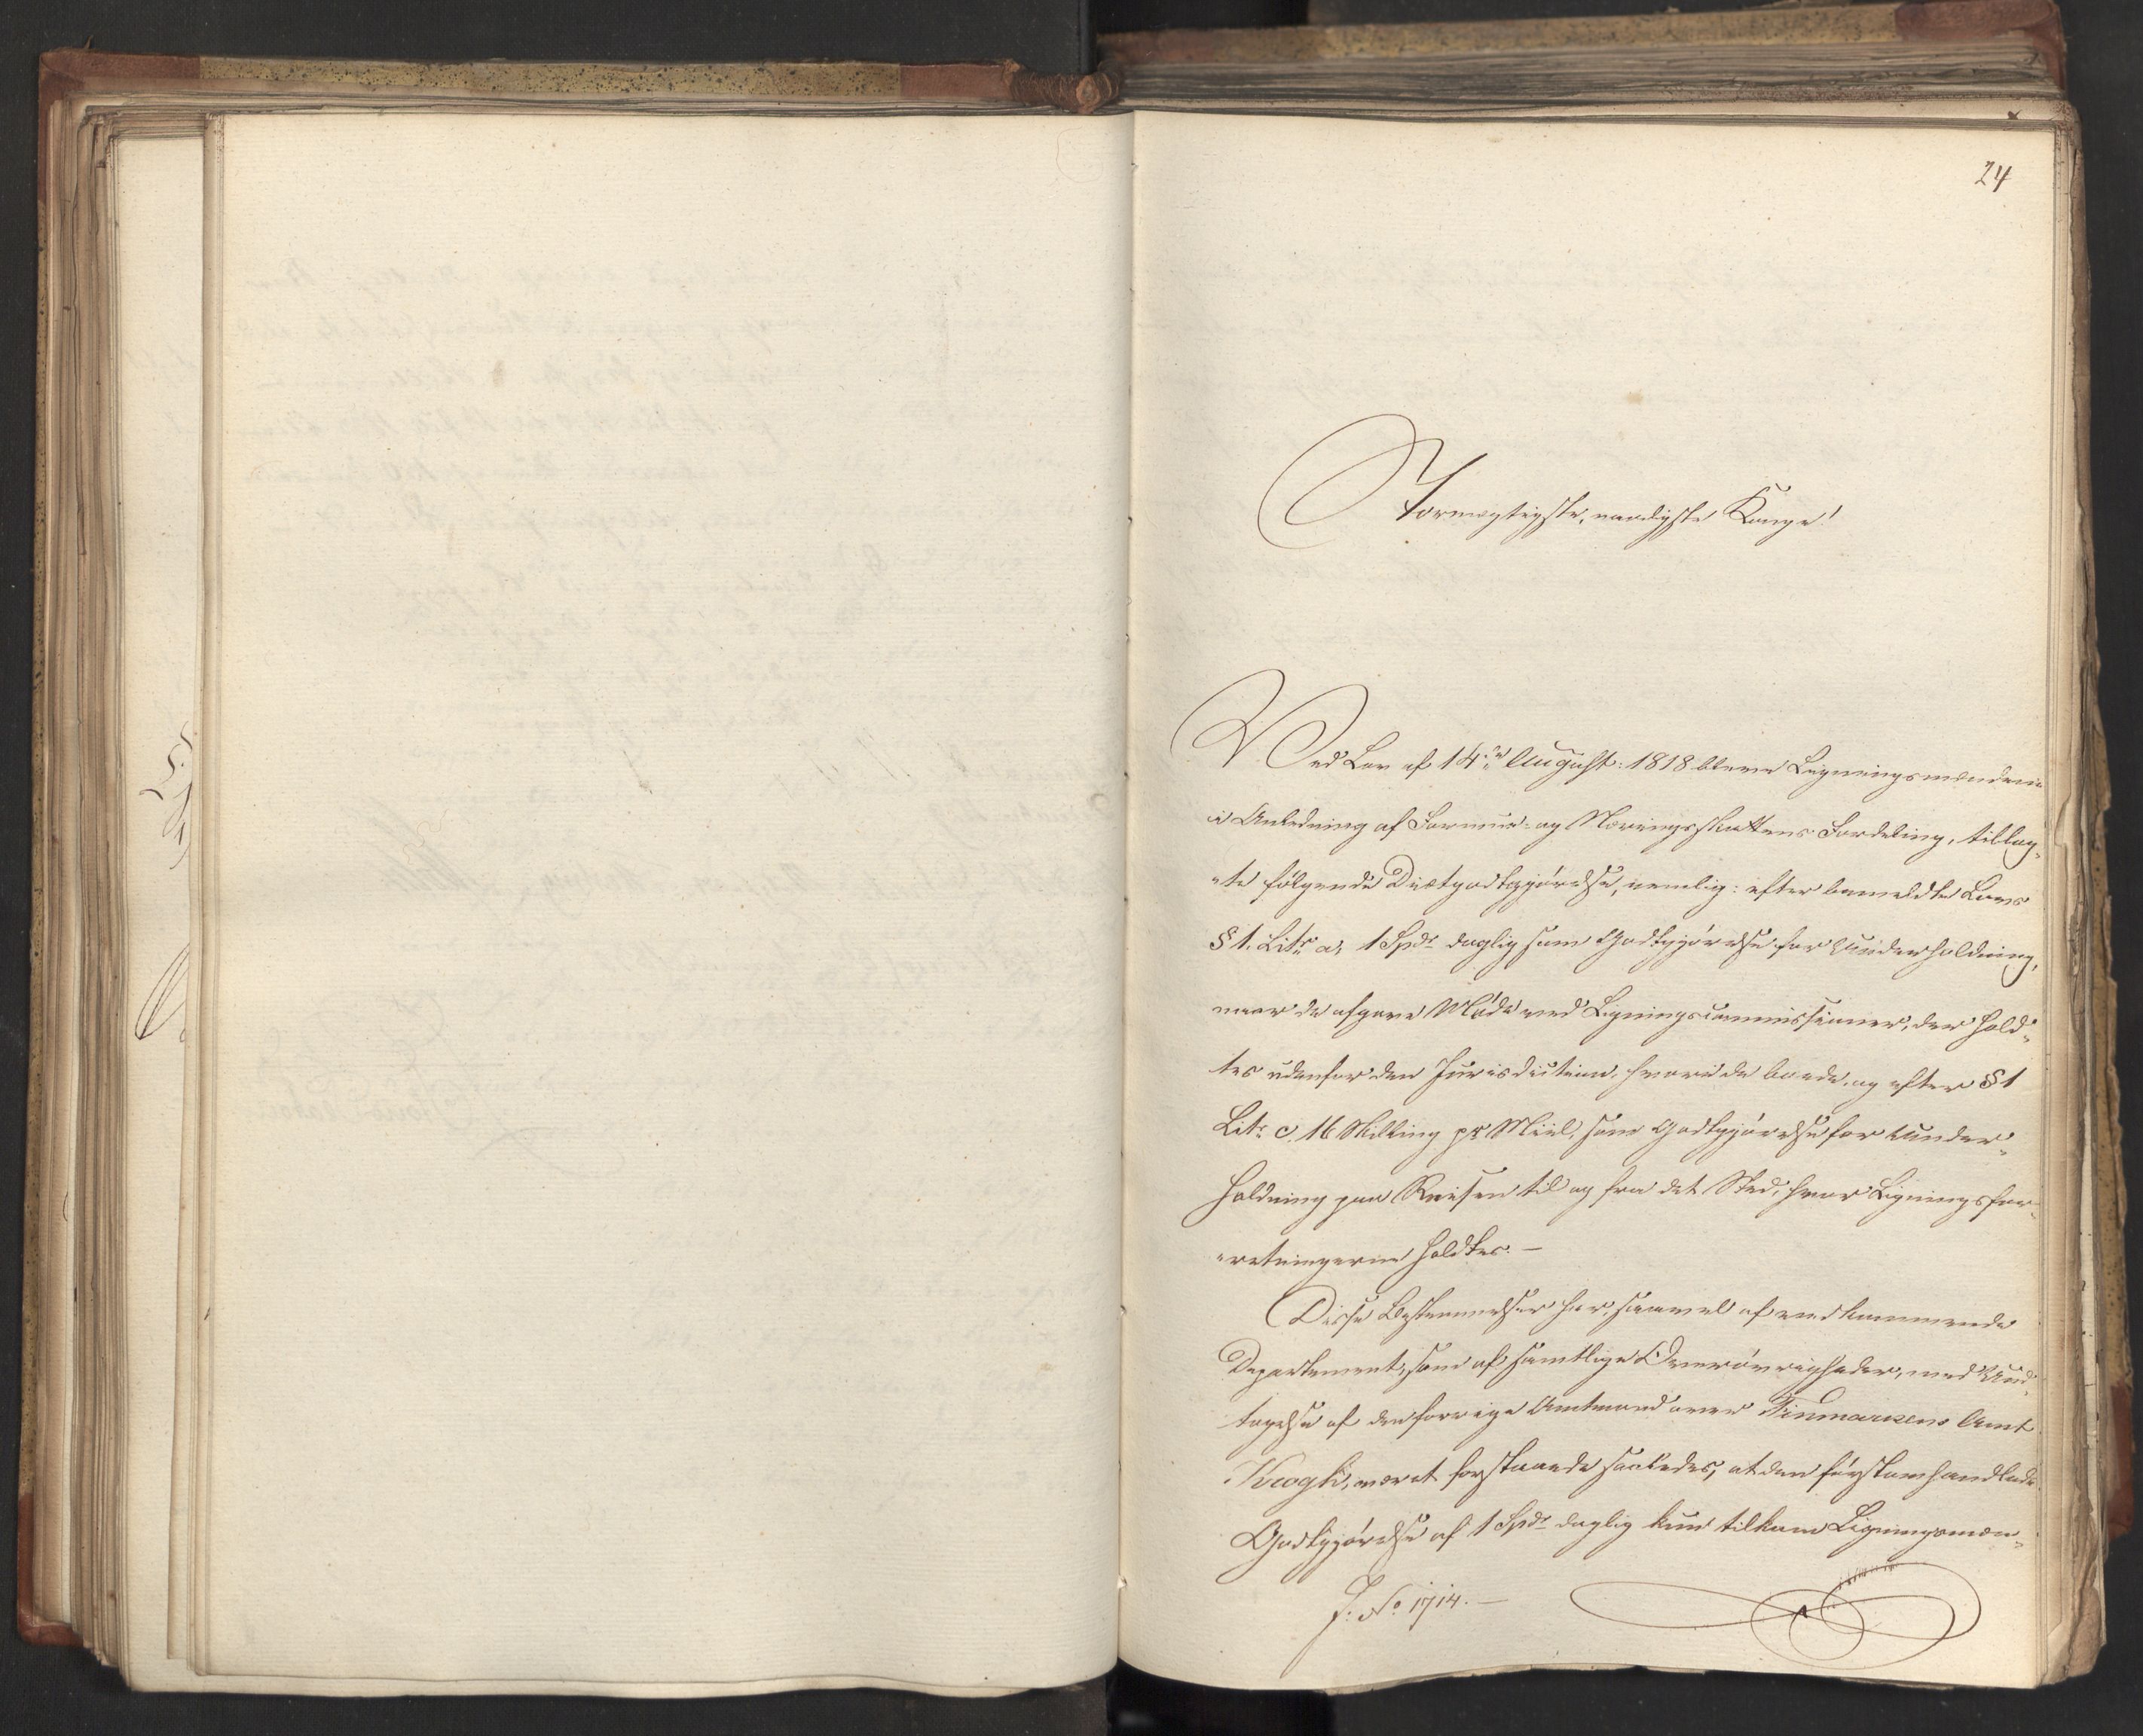 24
Stormægtigste, naadigste Konge!
Ved Lov af 14de August 1818 bleve Ligningsmændene
i Anledning af Formue- og Næringsskattens Fordeling, tillag-
-te følgende Diætgodtgjørelse, nemlig: efter bemeldte Lovs
§ 1. Litr a, 1 Spdr daglig som Godtgjørelse for Underholdning,
naar de afgave Møde ved Ligningscommissioner, der hold-
tes udenfor den Jurisdiction, hvori de boede, og efter § 1
Litr c. 16 Skilling pr Miil, som Godtgjørelse for Under-
holdning paa Reisen til og fra det Sted, hvor Ligningsfor-
-retningerne holdtes. —
Disse Bestemmelser har, saavel af vedkommende
Departement, som af samtlige Overøvrigheder, med Und-
tagelse af den forrige Amtmand over Finmarkens Amt
Krogh, været forstaaede saaledes, at den førstomhandlede
Godtgjørelse af 1 Spdr daglig kun tilkom Ligningsmæn-
J: No 1714. —